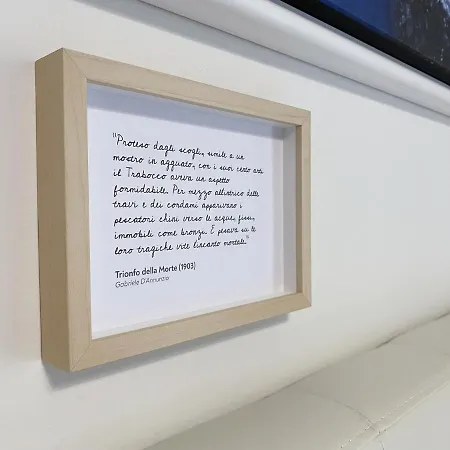 "Proteso dagli scogli, simile a un
mostro in agguato, con i suoi cento arti
il Trabocco aveva un aspetto
formidabile. Per mezzo all'intrico delle
travi e dei cordami apparivano i
pescatori chini verso le acque, fissi,
immobili come bronzi. E pesava su le
loro tragiche vite l'incanto mortale."
Trionfo della Morte (1903)
Gabriele D'Annunzio